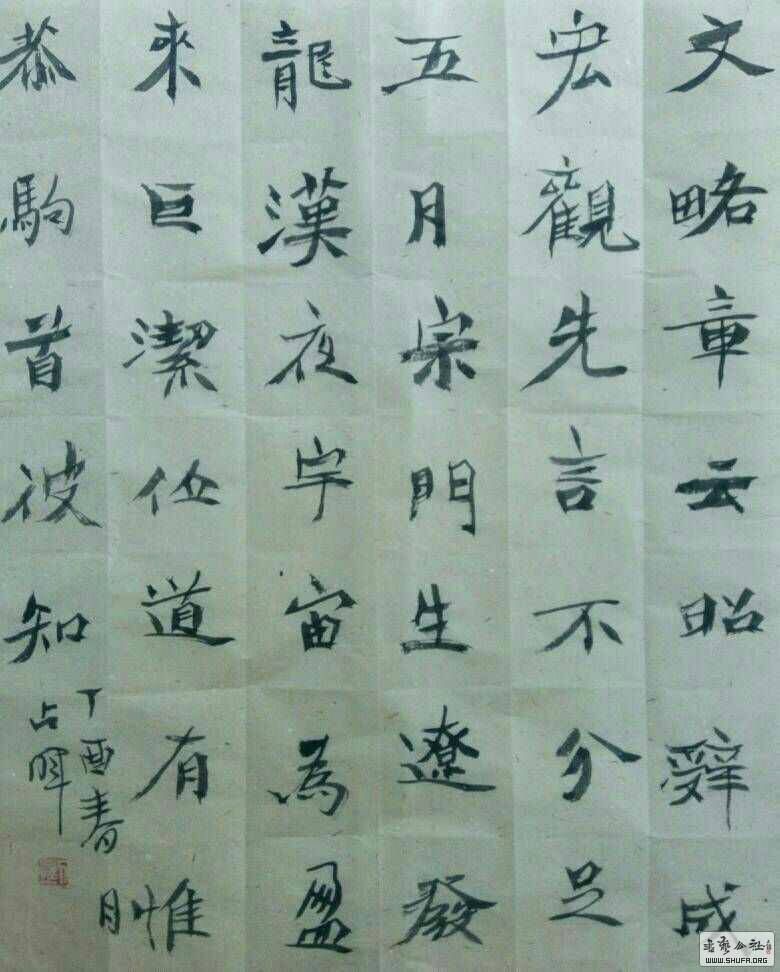 文略章云昭辭成
宏觀先言不分足
五月宗門生遼發
龍漢夜宇宙為盈
來巨潔位道有惟
恭駒首彼知
丁酉春月
占暉
WWW.SHUFA.ORG